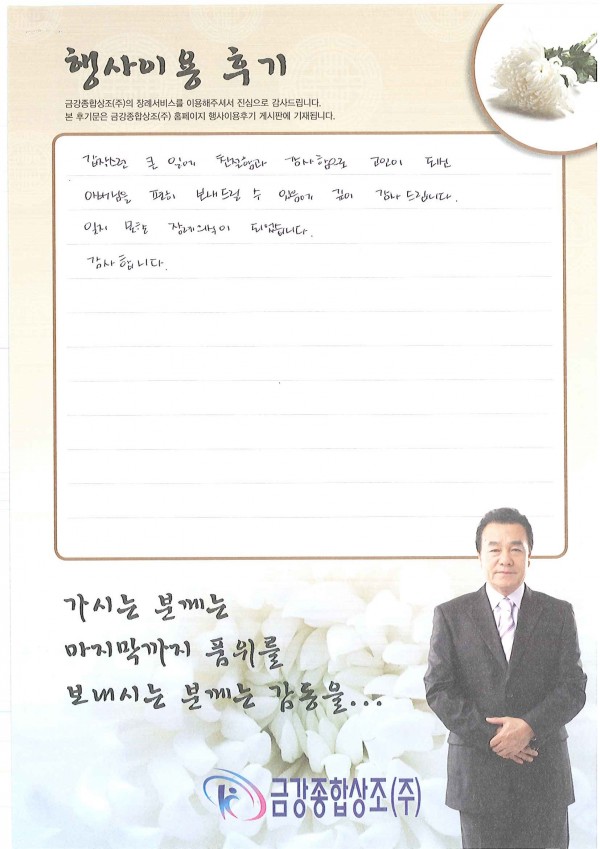 행사이용 후기
금강종합상조(주)의 장례서비스를 이용해주셔서 진심으로 감사드립니다.
본 후기문은 금강종합상조(주) 홈페이지 행사이용후기 게시판에 기재됩니다.
갑작스런 큰 일에 친절함과 감사함으로 고인이 되신
아버님을 편히 보내드릴 수 있음에 깊이 감사 드립니다.
잊지 못할 장례의식이 되었습니다.
감사합니다.
가시는 분께는
마지막까지 품위를
보내시는 분께는 감동을...
금강종합상조(주)